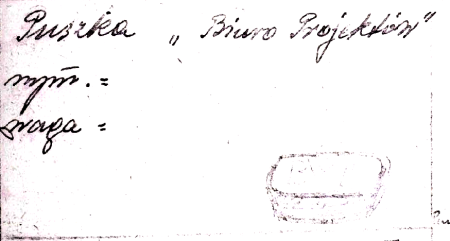 Puszka „Biuro Projektów"
wym. =
waga =